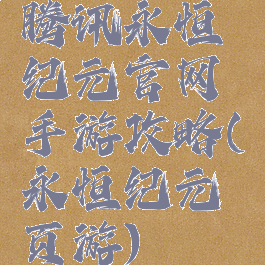 腾讯永恒
纪元官网
手游攻略(
永恒纪元
页游)